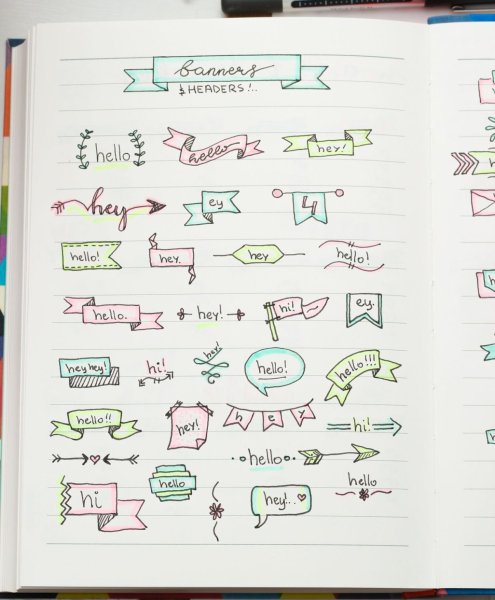 banners
& HEADERS!..
hello
hello
hey!
hey
ey
4
hello!
hey.
hey
hello!
hello.
hey!
hi!
ey.
hey hey!
hi!
hey!
hello!
hello!!!
hello!!
hey!
hey
hi!
hello
hi
hello
hey!..
hello